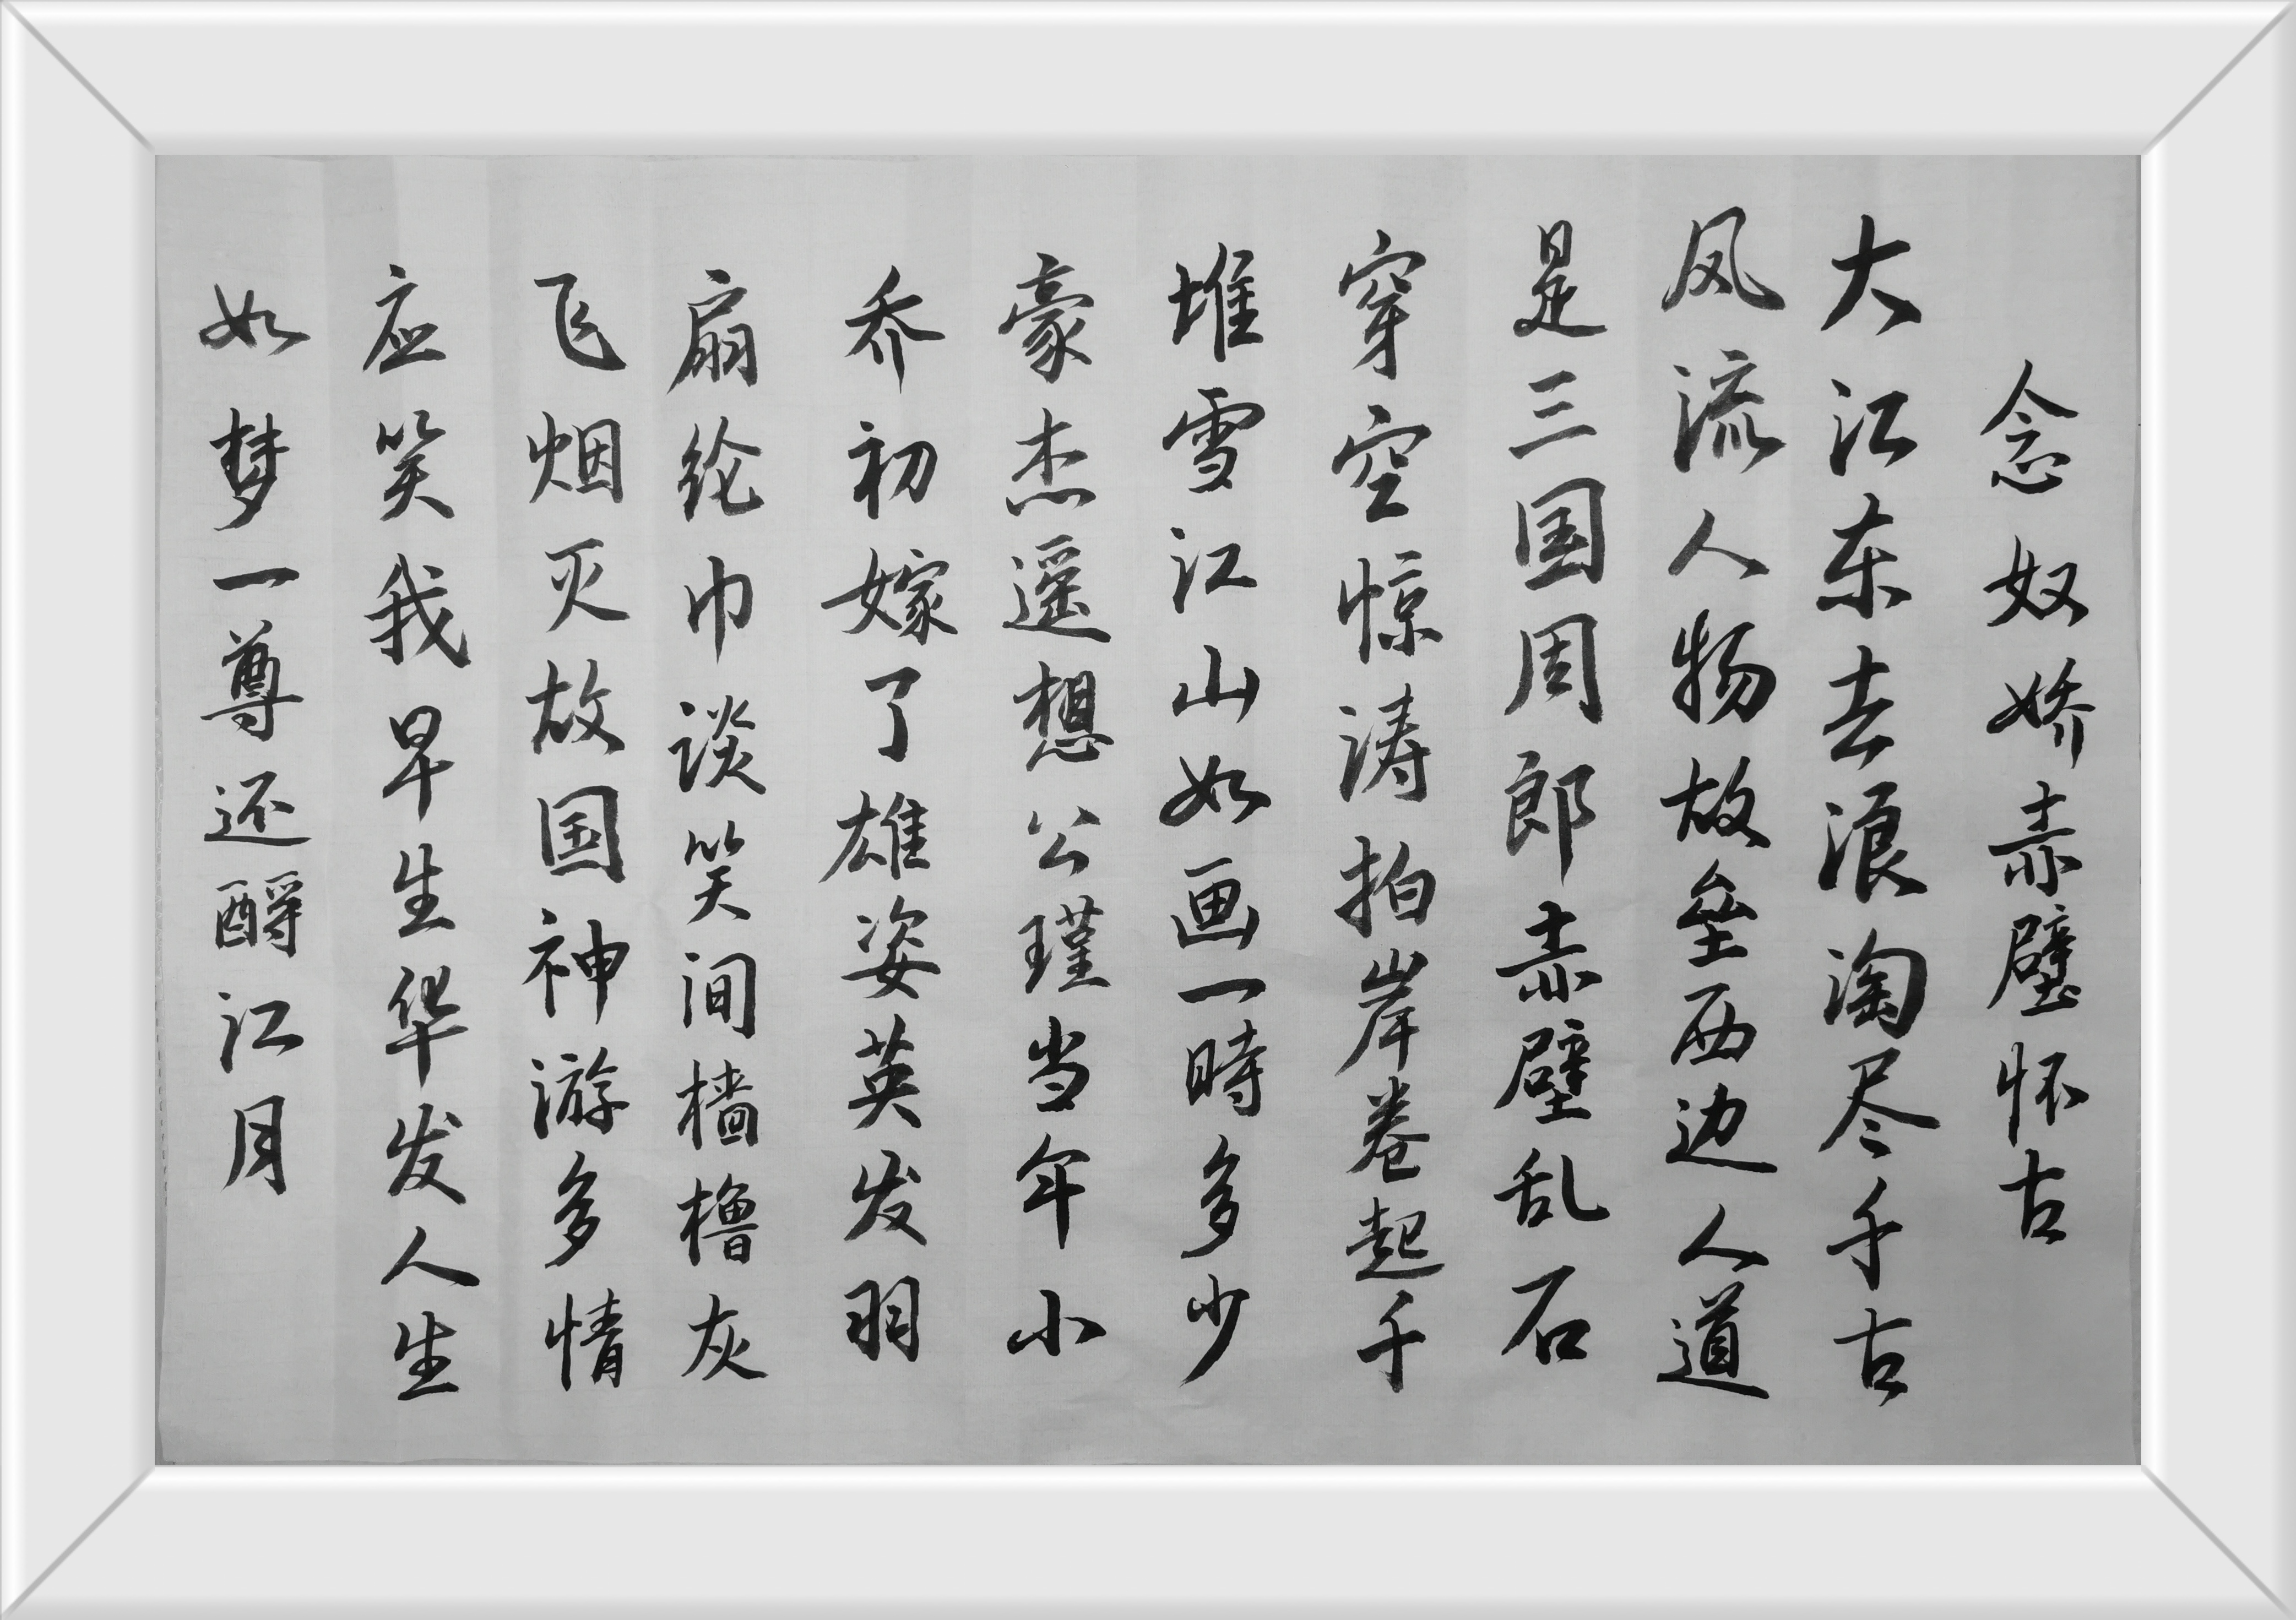 念奴娇赤壁怀古
大江东去浪淘尽千古
风流人物故垒西边人道
是三国周郎赤壁乱石
穿空惊涛拍岸卷起千
堆雪江山如画一時多少
豪杰遥想公瑾当年小
乔初嫁了雄姿英发羽
扇纶巾谈笑间樯橹灰
飞烟灭故国神游多情
应笑我早生华发人生
如梦一尊还酹江月